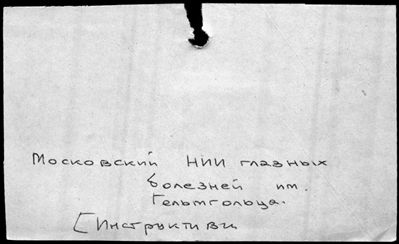 Московский НИИ глазных
болезней им.
Гельмгольца.
[Инструктивн